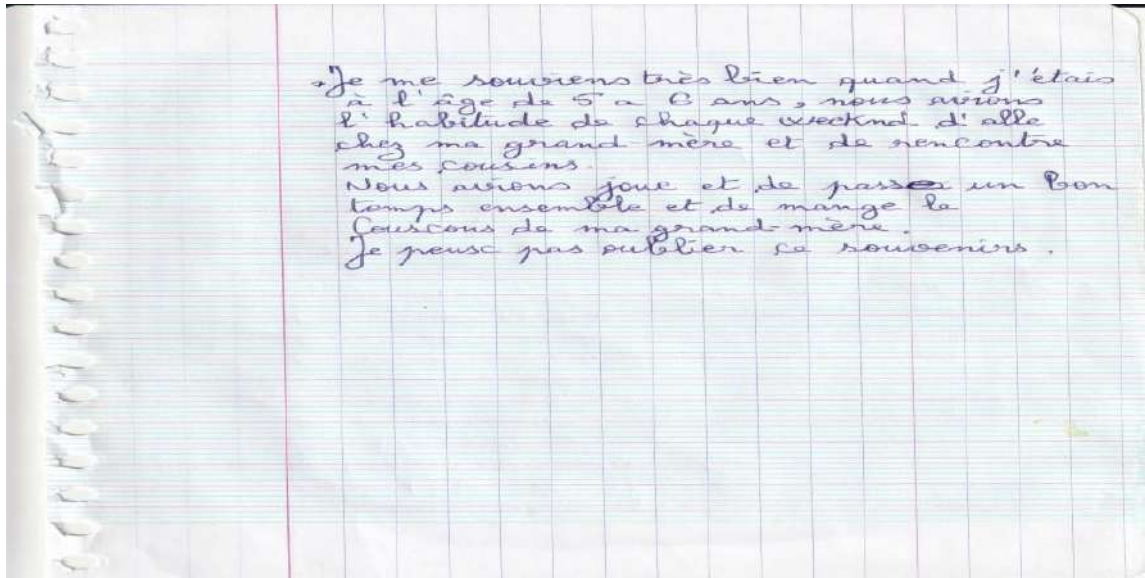 Je me souviens très bien quand j'étais
à l'âge de 5 a 6 ans, nous avions
l'habitude de chaque weeknd d'alle
chez ma grand-mère et de rencontre
mes cousins.
Nous avions joue et de passe un bon
temps ensemble et de mange le
Couscous de ma grand-mère.
Je peusc pas oublier ce souvenirs.